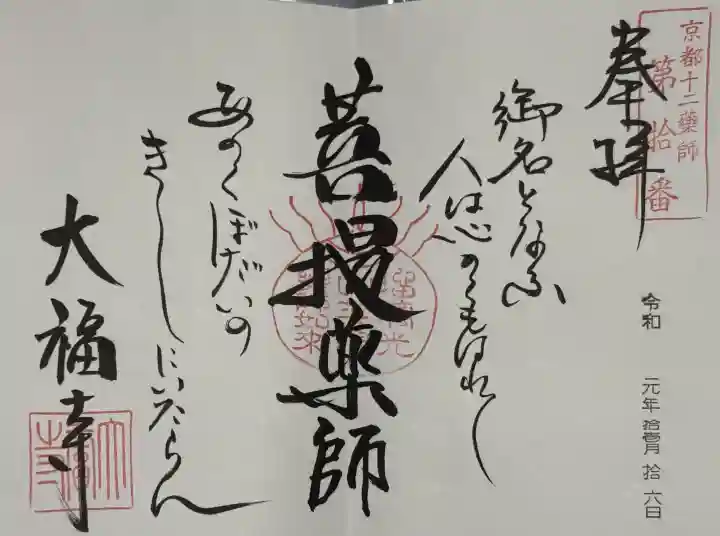 京都十二藥師
第拾番
奉拝
令和 元年 拾壹月 拾六日
御名となふ
人は心のくもはれ
菩提薬師
あのくぼだいの
きしにいたらん
大福寺